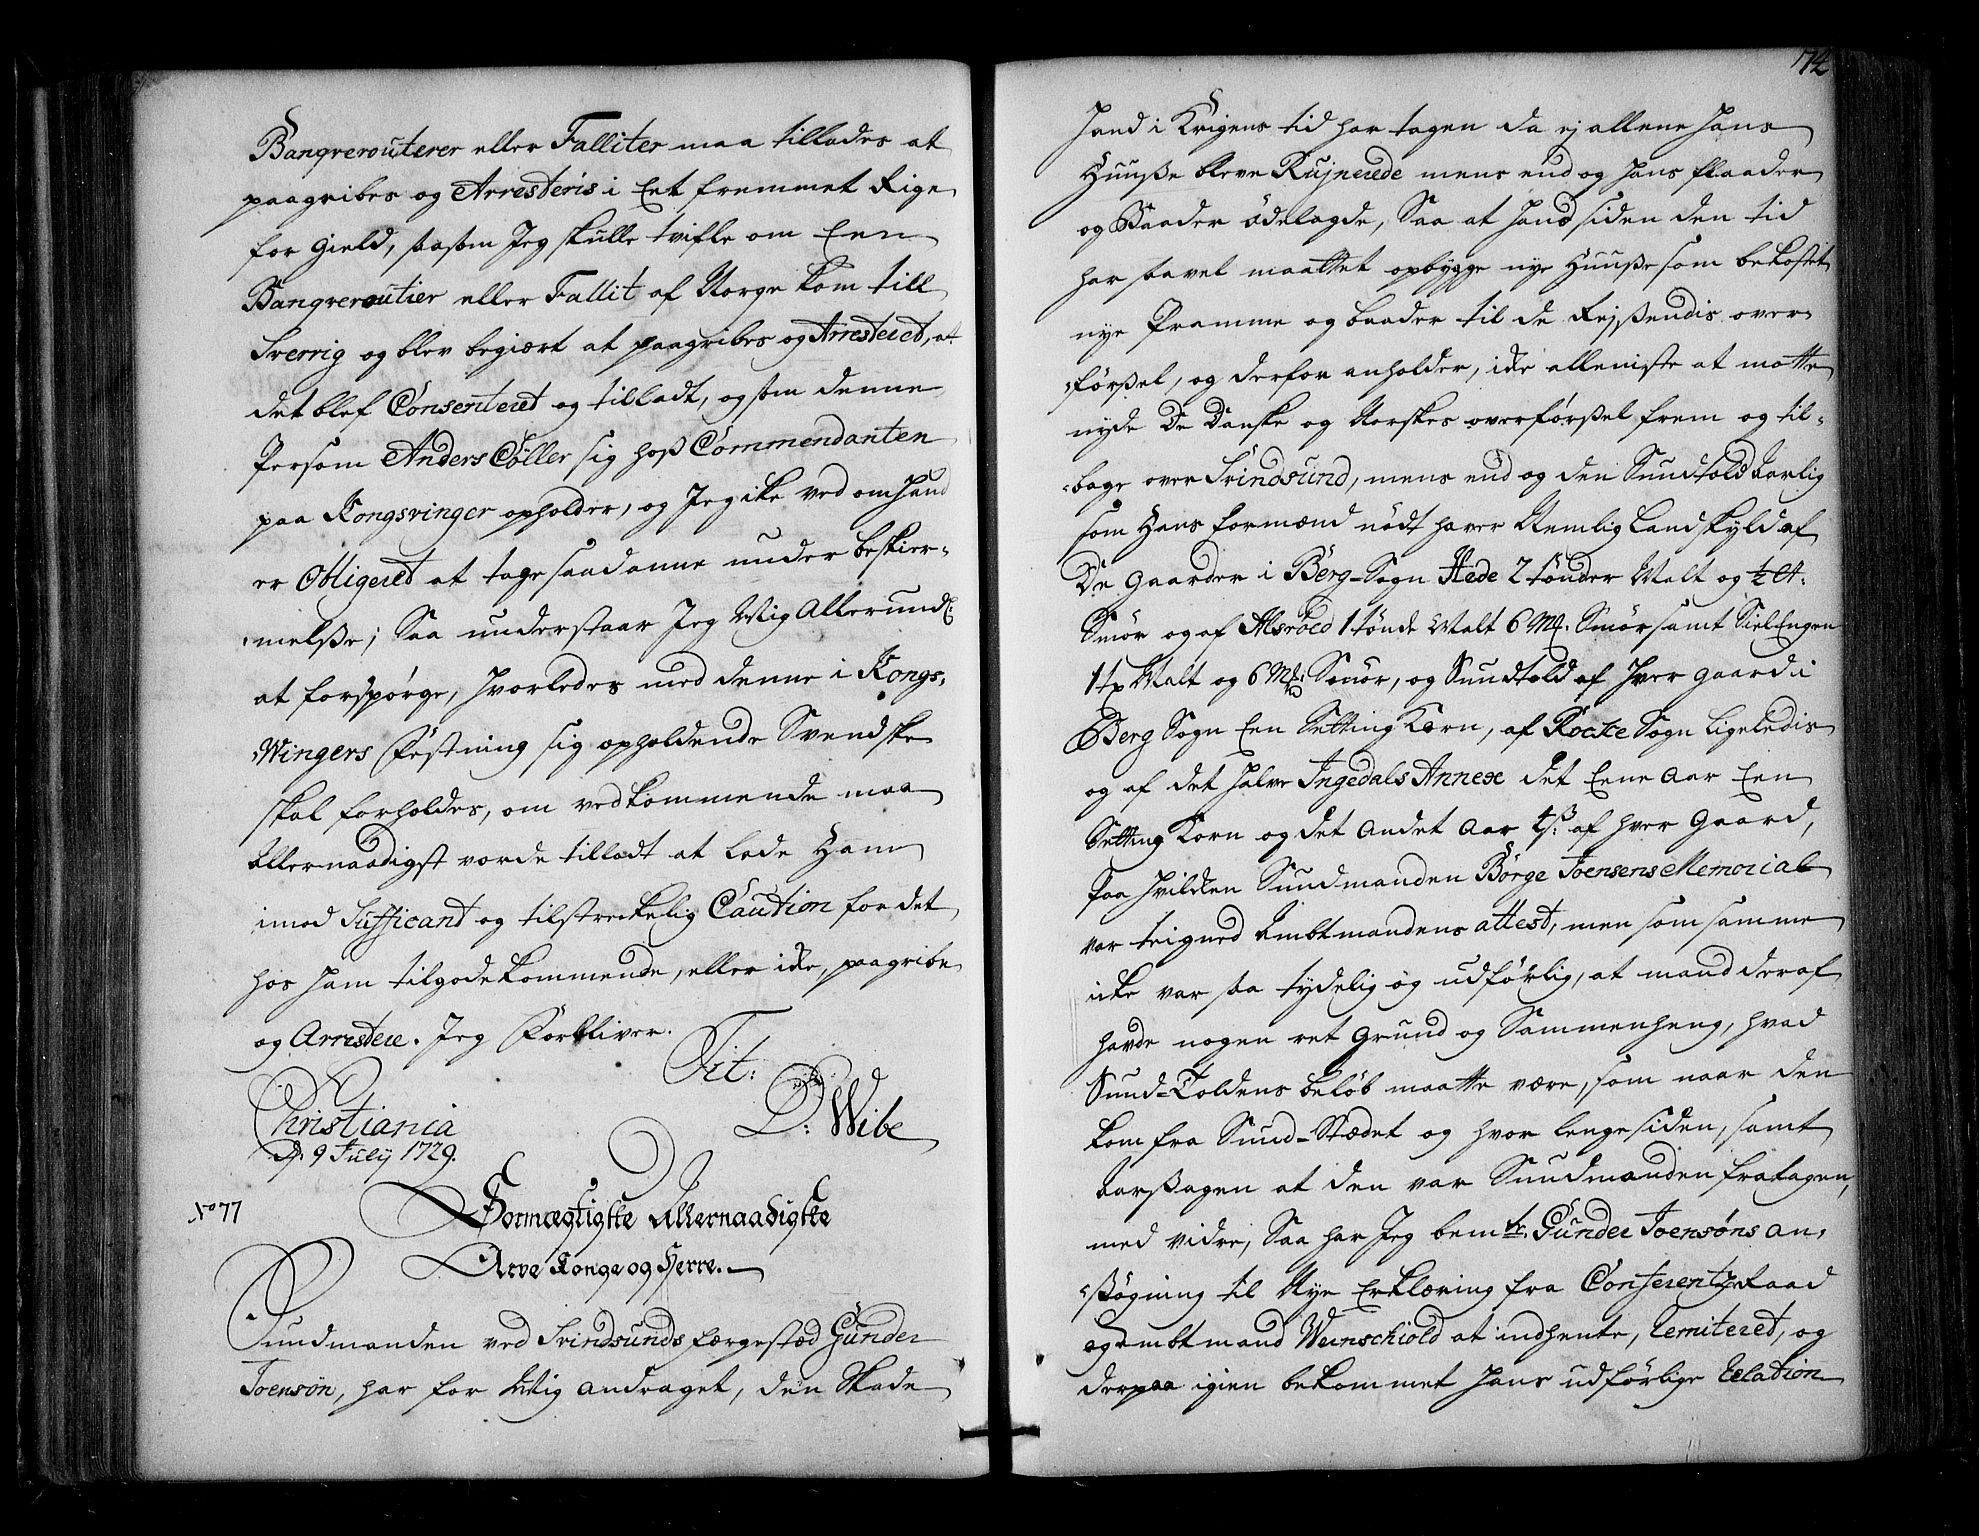 Banqverouterer eller Falliter maa tillades at
paagribes og Arresteris i Eet fremmet Rige
for Gield, saasom Jeg skulle tvifle om Een
Banqveroutier eller Fallit af Norge kom till
Sverrig og blev begiært at paagribes og Arresteret, at
det blef Consenteret og tilladt, og som denne
Persom Anders Cöller sig hoß Commendanten
paa Kongsvinger opholder, og Jeg ike ved om hand
er Obligeret at tage saadanne under beskier-
melße; Saa understaar Jeg Mig Allerund:
at forspørge, hvorledes med denne i Kongs-
Wingers Festning sig opholdende Svendske
skal forholdes, om vedkommende maa
Allernaadigst vorde tilladt at lade Ham
imod Sufficant og tilstreckelig Caution for det
hos ham tilgodekommende, eller icke, paagribe
og Arrestere. Jeg Forbliver.
Tit:
Christiania
D. 9 July 1729.
D: Wibe
No 77
Stormægtigste Allernaadigste
Arve Konge og Herre.
Sundmanden ved Svindsunds færgestæd Gunder
Joensøn, har for Mig andraget, den Skade
72
hand i Krigens tid har tagen da ej allene hans
Huuße bleve Rujnerede mens end og hans Skaader
og Baader ödelagde, Saa at hand siden den tid
har savel maattet opbygge nye Huuße som bekostet
nye Pramme og baader til de Rejßendis over-
førßel, og derfor anholder, icke alleniste at motte
nyde De Danske og Norskes overførßel frem og til-
bage over Svindsund, mens end og den Sundtold Aarlig
som Hans formænd nödt haver Nemlig Landskyld af
De Gaarder i Berg-Sogn Hede 2 tønder Malt og ½ ct:
Smör og af Alsröed 1 tønde Malt 6 Mk: Smör samt SielEngen
1 tø Malt og 6 Mk: Smör, og Sundtold af hver gaard i
Berg Sogn Een Setting Korn, af Rocke Sogn ligeledis
og af det halve Ingedals Annex det Eene Aar Een
Setting Korn og det Andet Aar ß: af hver Gaard,
Paa hvilcken Sundmanden Börge Joensens Memorial
var teigned Ambtmandens attest, men som samme
icke var saa tydelig og udførlig, at mand deraf
havde nogen ret Grund og Sammenheng, hvad
Sund-Toldens beløb maatte være, som naar den
kom fra Sund-Stædet og hvor lenge siden, samt
Aarßagen at den var Sundmanden fratagen,
med vidre, Saa har Jeg bemte. Gunder Joensøns an-
søgning til Nye Erklæring fra Conferentz Raad
og Ambtmand Wernschiold at indhente, Remiteret, og
derpaa igien bekommet hans udførlige Relation